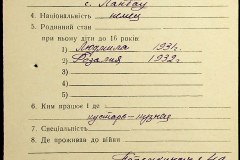 с. Ландау
4. Національність немец
5. Родинний стан
при ньому діти до 16 років:
1) Людмила 1931г.
2) Розалия 1932г.
3)
4)
6. Ким працює і де
7. Спеціальність
8. Де проживав до війни